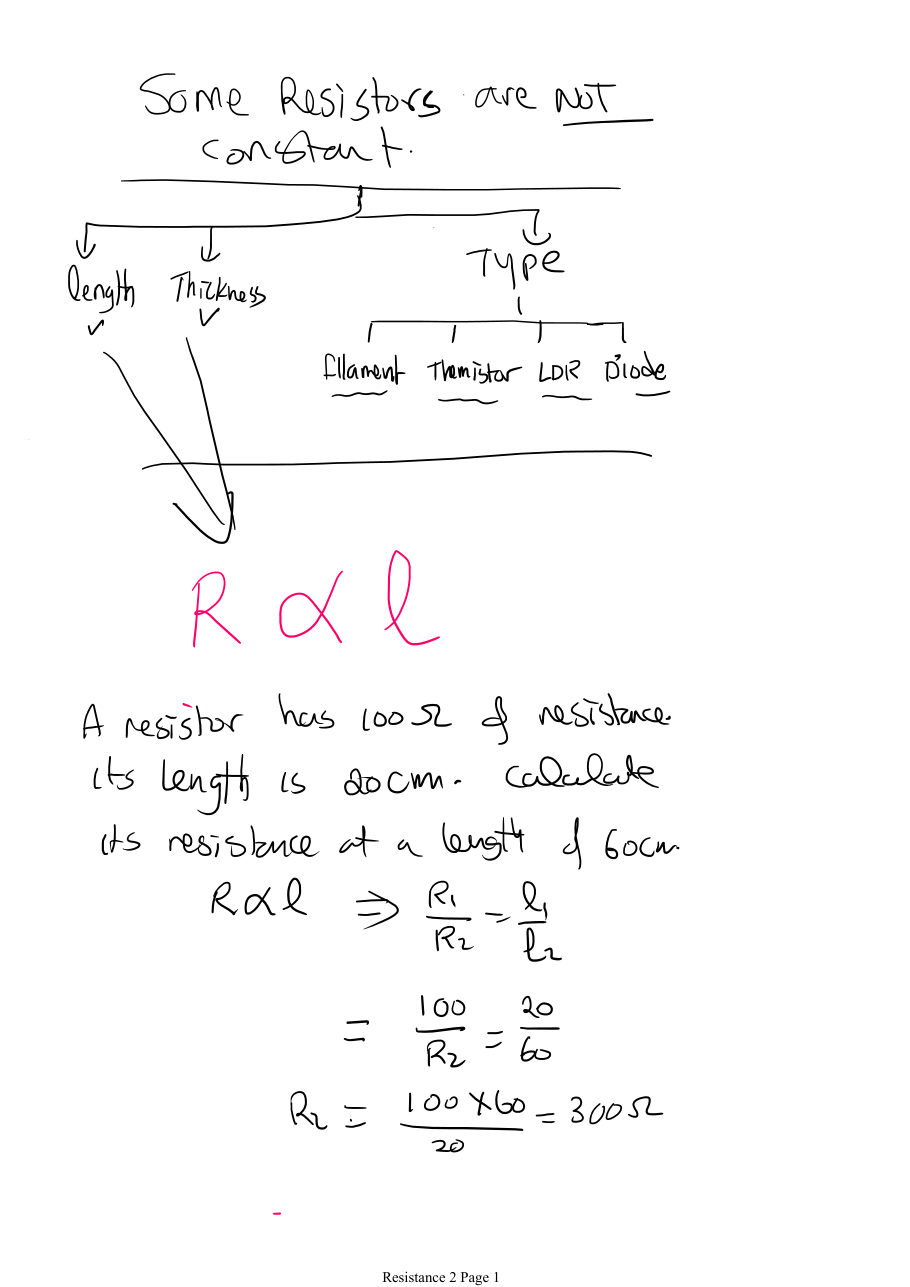 Some Resistors are NOT
constant.
length Thickness
Type
fllament Themistor LDR Diode
R ∝ l
A resistor has 100Ω of resistance.
its length is 20cm. calculate
its resistance at a length of 60cm.
R∝l ⇒ R₁/R₂ = l₁/l₂
= 100/R₂ = 20/60
R₂ = 100×60/20 = 300Ω
Resistance 2 Page 1